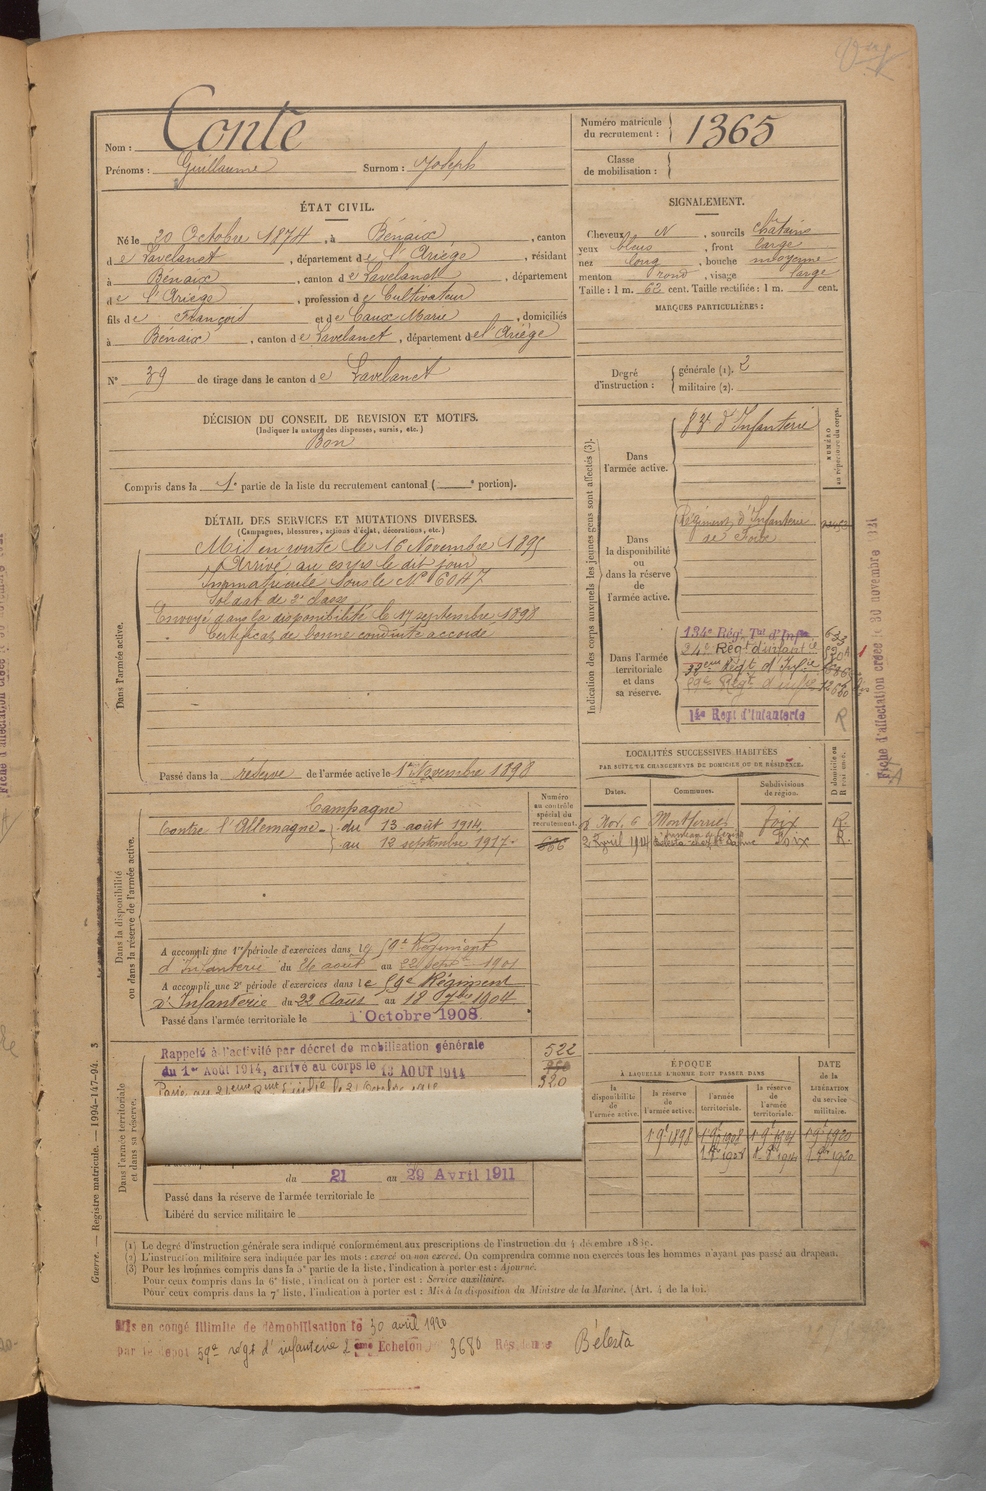 Nom : Conte
Prénoms : Guillaume Surnom : Joseph
Numéro matricule du recrutement : 1365
Classe de mobilisation :
ÉTAT CIVIL.
Né le 20 Octobre 1874, à Bénaix, canton
de Lavelanet, département de l'Ariège, résidant
à Bénaix, canton de Lavelanet, département
de l'Ariège, profession de Cultivateur
fils de François et de Caux Marie, domiciliés
à Bénaix, canton de Lavelanet, département de l'Ariège
N° 39 de tirage dans le canton de Lavelanet
SIGNALEMENT.
Cheveux N, sourcils châtains
yeux bleus, front large
nez long, bouche moyenne
menton rond, visage large
Taille : 1 m. 62 cent. Taille rectifiée : 1 m. cent.
MARQUES PARTICULIÈRES :
Degré d'instruction : générale (1). 2
militaire (2).
DÉCISION DU CONSEIL DE REVISION ET MOTIFS.
(Indiquer la nature des dispenses, sursis, etc.)
Bon
Compris dans la 1e partie de la liste du recrutement cantonal ( e portion).
DÉTAIL DES SERVICES ET MUTATIONS DIVERSES.
(Campagnes, blessures, actions d'éclat, décorations, etc.)
Dans l'armée active.
Mis en route le 16 Novembre 1895
Arrivé au corps le dit jour
Immatriculé sous le N° 6047
Soldat de 2e classe
Envoyé dans la disponibilité le 17 septembre 1898
Certificat de bonne conduite accordé
Passé dans la réserve de l'armée active le 1er Novembre 1898
Indication des corps auxquels les jeunes gens sont affectés (3).
NUMÉRO au répertoire du corps.
Dans l'armée active.
83e d'Infanterie
Dans la disponibilité ou dans la réserve de l'armée active.
Régiment d'Infanterie
de Foix
Dans l'armée territoriale et dans sa réserve.
134e Régt Tal d'Infie 633
34e Régt d'infant ie
Régt d'Infie
59e Régt d'infie
14e Régt d'Infanterie R
Fiche d'affectation créée le 30 novembre 1921
Dans la disponibilité ou dans la réserve de l'armée active.
Numéro au contrôle spécial du recrutement.
Campagne
Contre l'Allemagne - du 13 août 1914,
au 12 septembre 1917.
666
A accompli une 1re période d'exercices dans le 59e Régiment
d'Infanterie du 26 août au 22 septbre 1901
A accompli une 2e période d'exercices dans le 59e Régiment
d'Infanterie du 22 Août au 18 7bre 1904
Passé dans l'armée territoriale le 1 Octobre 1908
LOCALITÉS SUCCESSIVES HABITÉES
PAR SUITE DE CHANGEMENTS DE DOMICILE OU DE RÉSIDENCE.
Dates. Communes. Subdivisions de région. D domicile ou R résidence.
Nov. 6 Montferrier Foix R.
2 Avril 1914 Foix R.
Dans l'armée territoriale et dans sa réserve.
Rappelé à l'activité par décret de mobilisation générale
du 1er Août 1914, arrivé au corps le 13 AOUT 1914
522
320
du 21 au 29 Avril 1911
Passé dans la réserve de l'armée territoriale le
Libéré du service militaire le
ÉPOQUE
À LAQUELLE L'HOMME DOIT PASSER DANS
la disponibilité de l'armée active. la réserve de l'armée active. l'armée territoriale. la réserve de l'armée territoriale.
DATE de la LIBÉRATION du service militaire.
1 9bre 1898 1 9bre 1908 1 9bre 1914 1 9bre 1920
(1) Le degré d'instruction générale sera indiqué conformément aux prescriptions de l'instruction du 4 décembre 18
(2) L'instruction militaire sera indiquée par les mots : exercé ou non exercé. On comprendra comme non exercés tous les hommes n'ayant pas passé au drapeau.
(3) Pour les hommes compris dans la 5e partie de la liste, l'indication à porter est : Ajourné.
Pour ceux compris dans la 6e liste, l'indication à porter est : Service auxiliaire.
Pour ceux compris dans la 7e liste, l'indication à porter est : Mis à la disposition du Ministre de la Marine. (Art. 4 de la loi.)
Guerre. — Registre matricule. — 1994-147-94. 3
Mis en congé illimité de démobilisation le 30 avril 1920
par le dépôt 59e régt d'infanterie 2 ème Echelon 3680 Résidence Bélesta